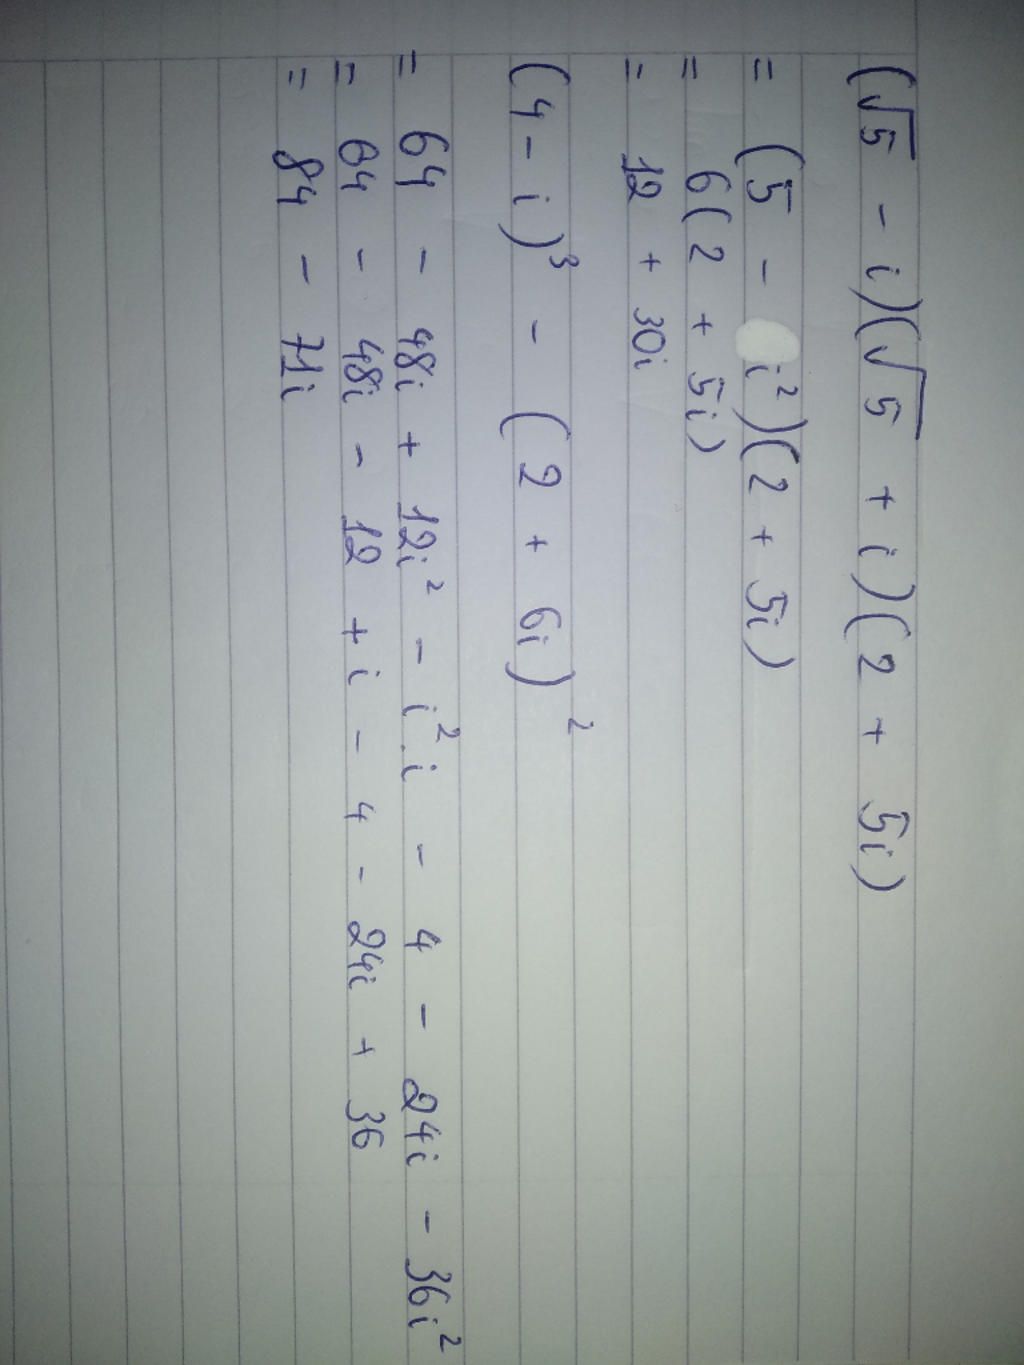 (√5 - i)(√5 + i)(2 + 5i)
= (5 - i²)(2 + 5i)
= 6(2 + 5i)
= 12 + 30i
(4 - i)³ - (2 + 6i)²
= 64 - 48i + 12i² - i².i - 4 - 24i - 36i²
= 64 - 48i - 12 + i - 4 - 24i + 36
= 84 - 71i